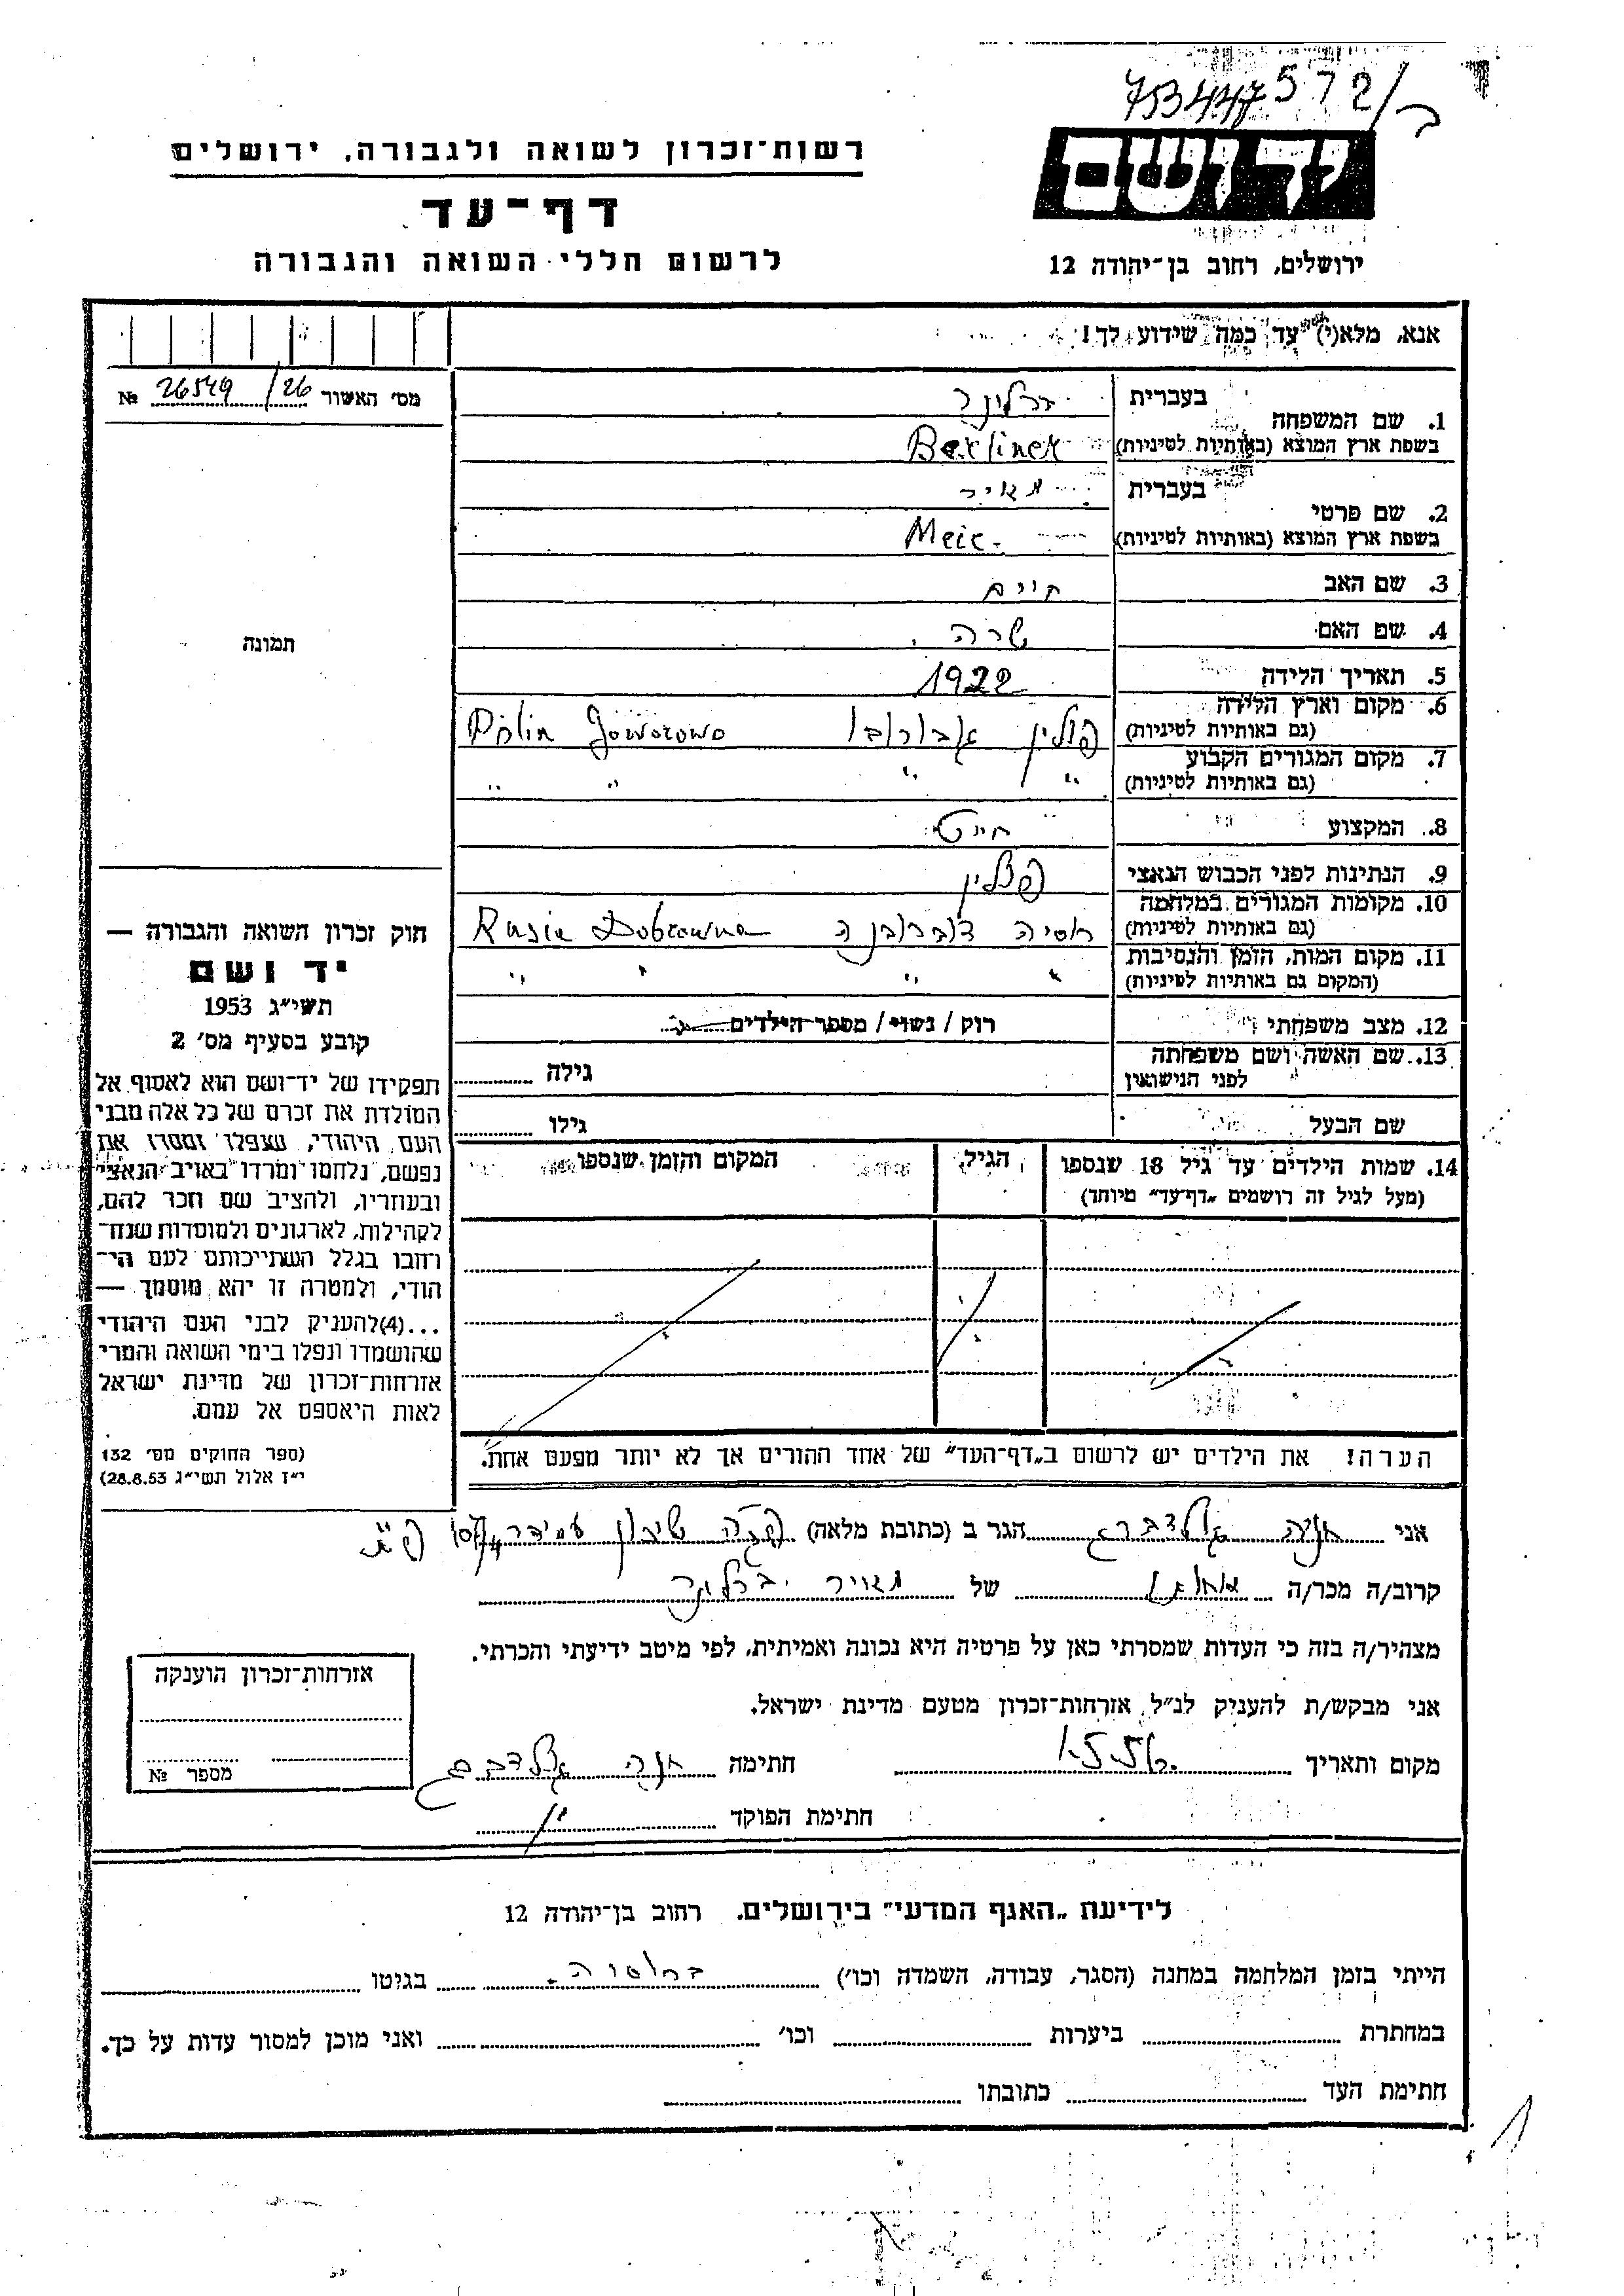 753447 572/ב
רשות־זכרון לשואה ולגבורה, ירושלים
דף־עד
לרשום חללי השואה והגבורה
יד ושם
ירושלים, רחוב בן־יהודה 12
אנא, מלא(י) עד כמה שידוע לך!
מס' האשור 26549/26 №
תמונה
1. שם המשפחה
בעברית ברלינר
בשפת ארץ המוצא (באותיות לטיניות) Berliner
2. שם פרטי
בעברית מאיר
בשפת ארץ המוצא (באותיות לטיניות) Meir.
3. שם האב חיים
4. שם האם שרה
5. תאריך הלידה 1922
6. מקום וארץ הלידה
(גם באותיות לטיניות) פולין גבורובו Polin Goworowo
7. מקום המגורים הקבוע
(גם באותיות לטיניות) " " " "
8. המקצוע חייט
9. הנתינות לפני הכבוש הנאצי פולין
10. מקומות המגורים במלחמה
(גם באותיות לטיניות) רוסיה דוברובנה Rusia Dobrowna
11. מקום המות, הזמן והנסיבות
(המקום גם באותיות לטיניות) " " " "
12. מצב משפחתי רוק / נשוי / מספר הילדים
13. שם האשה ושם משפחתה
לפני הנישואין גילה
שם הבעל גילו
14. שמות הילדים עד גיל 18 שנספו
(מעל לגיל זה רושמים „דף־עד" מיוחד)
הגיל
המקום והזמן שנספו
הערה! את הילדים יש לרשום ב„דף־העד" של אחד ההורים אך לא יותר מפעם אחת.
חוק זכרון השואה והגבורה —
יד ושם
תשי"ג 1953
קובע בסעיף מס' 2
תפקידו של יד־ושם הוא לאסוף אל
המולדת את זכרם של כל אלה מבני
העם היהודי, שנפלו ומסרו את
נפשם, נלחמו ומרדו באויב הנאצי
ובעוזריו, ולהציב שם וזכר להם,
לקהילות, לארגונים ולמוסדות שנח־
רבו בגלל השתייכותם לעם הי־
הודי, ולמטרה זו יהא מוסמך —
...(4) להעניק לבני העם היהודי
שהושמדו ונפלו בימי השואה והמרי
אזרחות־זכרון של מדינת ישראל
לאות היאספם אל עמם.
(ספר החוקים מס' 132
י"ז אלול תשי"ג 28.8.53)
אני חנה גולדברג הגר ב (כתובת מלאה) שיכון עמידר
קרוב/ה מכר/ה של מאיר ברלינר
מצהיר/ה בזה כי העדות שמסרתי כאן על פרטיה היא נכונה ואמיתית, לפי מיטב ידיעתי והכרתי.
אני מבקש/ת להעניק לנ"ל אזרחות־זכרון מטעם מדינת ישראל.
מקום ותאריך 1.5.56 חתימה חנה גולדברג
חתימת הפוקד
אזרחות־זכרון הוענקה
מספר №
לידיעת „האגף המדעי" בירושלים. רחוב בן־יהודה 12
הייתי בזמן המלחמה במחנה (הסגר, עבודה, השמדה וכו') ברוסיה. בגיטו
במחתרת ביערות וכו' ואני מוכן למסור עדות על כך.
חתימת העד כתובתו
1